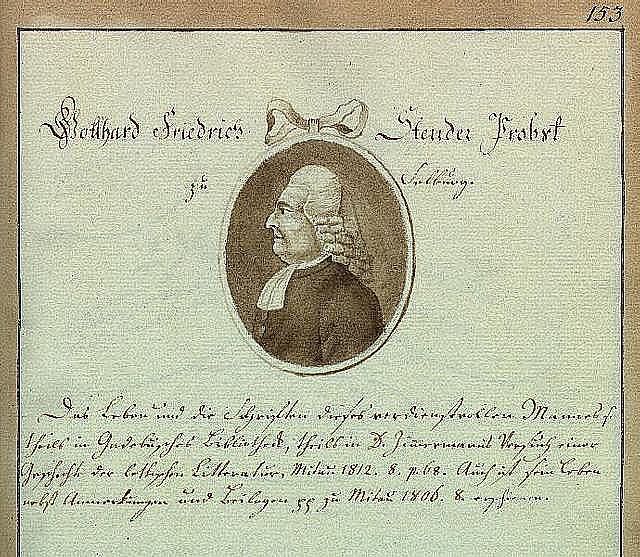 153
Gotthard Friedrich Stender Probst
zu Selburg.
Das Leben und die Schriften dieses verdienstvollen Mannes s.
theils in Gadebusches Bibliothek, theils in D. Zimmermanns Versuch einer
Geschichte der lettischen Litteratur, Mitau 1812. 8. p. 68. Auch ist sein Leben
nebst Anmerkungen und Beilagen pp zu Mitau 1806. 8. erschienen.